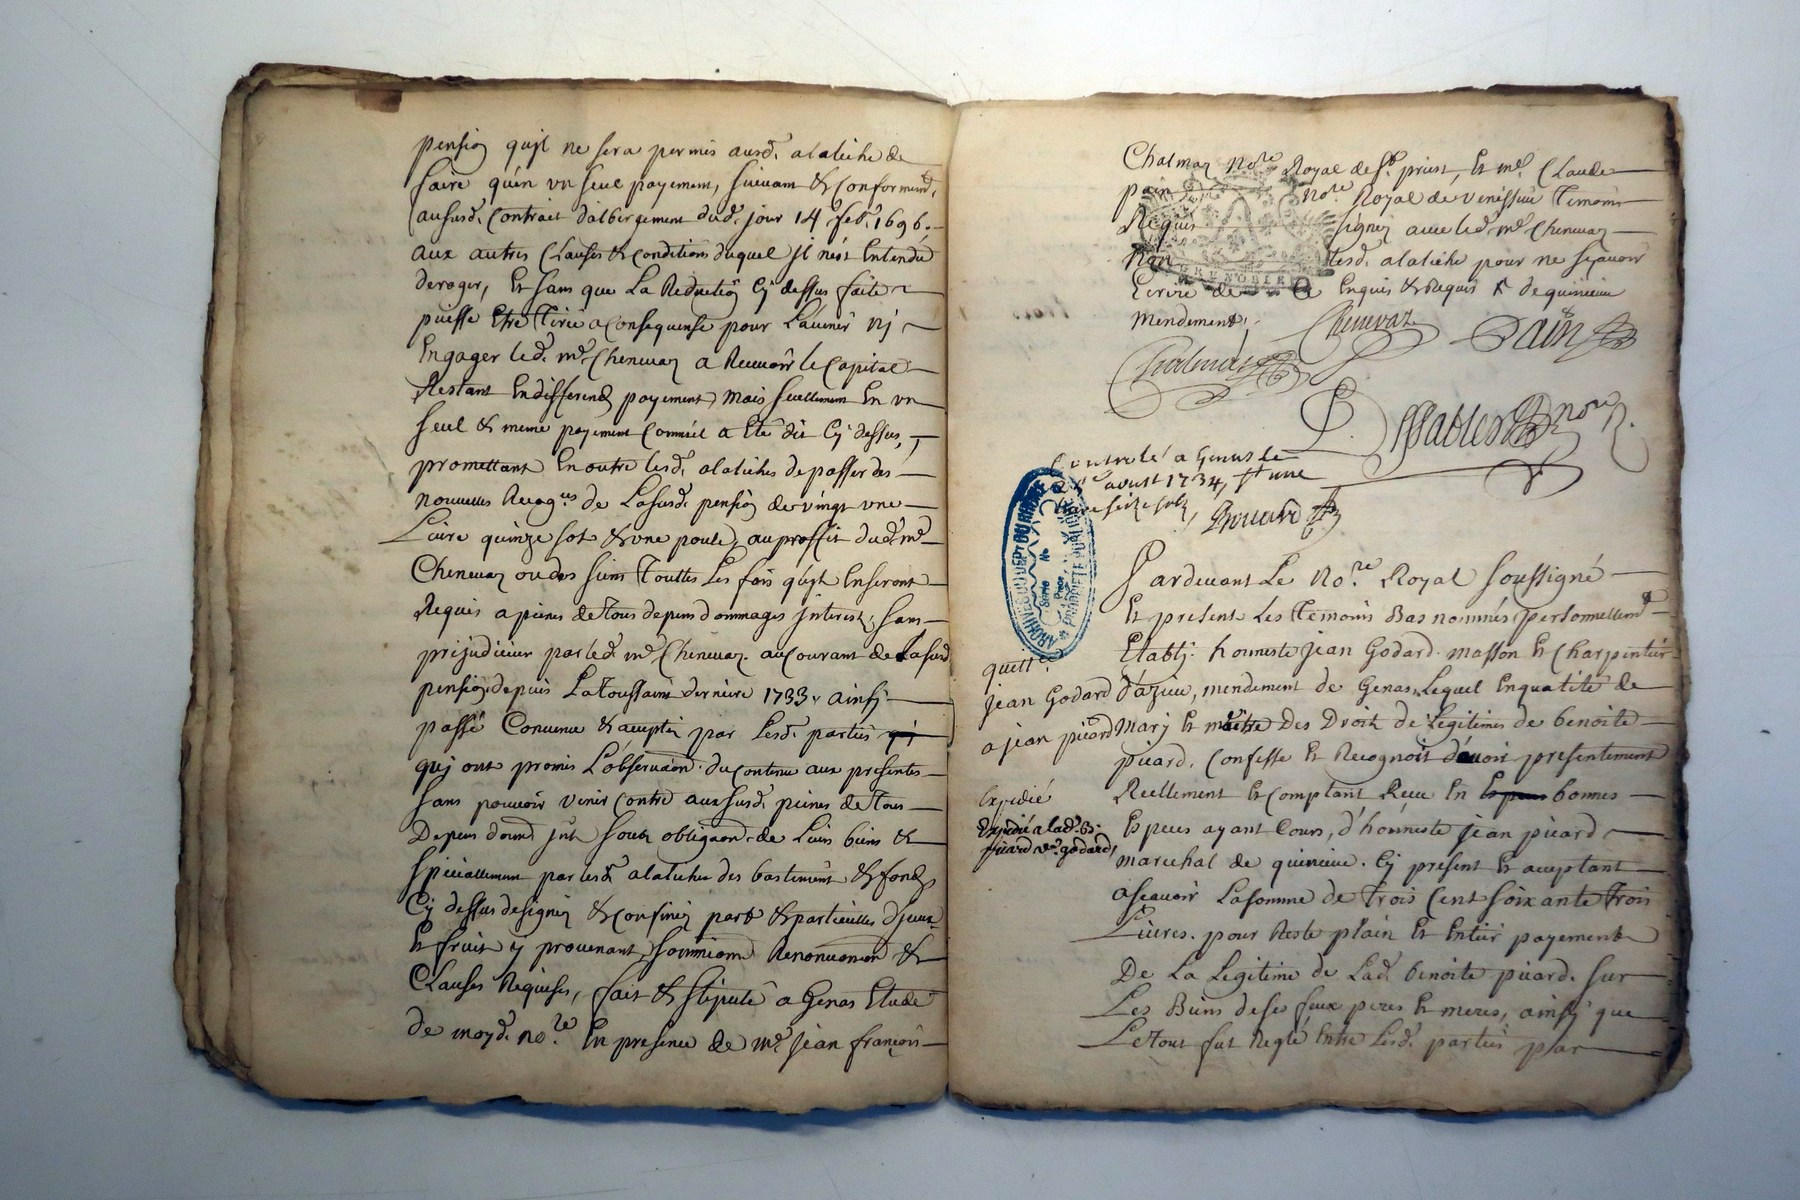 pension quil ne sera permis ausd. alatiche de
faire quen un seul payement, suivant & conformemt.
aususd. Contrait dalbergement dud. jour 14 febr. 1696.
aux autres Clauses & conditions duquel jl nest Entendu
deroger, Et sans que La Reduction Cy dessus faite
puisse Etre Tirée a consequense pour Lavenir nj
Engager led. mr. Chenevaz a Recevoir le Capital
Restant En differend payement, mais seullement En un
seul & meme payement Comme il a Eté dit Cy dessus,
promettant En outre lesd. alatiches de passer des
nouvelles Recogces de Lasusd. pension de vingt une
Livre quinze sol & une poule, au proffit dud. mr.
Chenevaz ou des siens Touttes Les fois quil En seront
Requis a peines de Tous depens dommages jnterest, sans
prejudicier par led. mr. Chenevaz au Courant de Lasusd
pension depuis La Toussaint derniere 1733, ainsy
passé Convenu & accepté par Lesd. parties
quj ont promis L'observaon. du Contenu aux presentes
sans pouvoir venir Contre aux susd. peines de Tous
Depens domd jnt sous obligaon. de Leurs biens &
speciallement par lesd. alatiches des bastiment & fonds
Cy dessus designez & confinez part & partie d'jceux
Et fruit y provenant, soumission Renonciation &
Clauses Requises, fait & stipulé a Genas Etude
de moyd. nore. En presence de mr. jean françois
Chalmaz Nore. Royal de St. priest, Et mr. Claude
pain Nore. Royal de venissieu Temoins
Requis signez avec led. mr. Chenevaz
Non lesd. alatiche pour ne sçavoir
GRENOBLE
Ecrire de Ce Enquis & Requis de quirieu
mendement,
Chenevaz Pain
Chalmaz
Sables nore.
Controlé a Genas le
aoust 1734,
seize sols
Pardevant Le Nore. Royal soussigné
Et present Les Temoins Bas nommés personnellemt
Etablj honneste jean Godard masson Et Charpentier
quittce
jean Godard
a jean picard
d'azieu, mendement de Genas, Lequel En qualité de
Marj Et maitre Des Droits de Legitimes de benoite
picard, Confesse Et Recognoit d'avoir presentement
Reellement Et comptant Receu En bonnes
Expedié
Expedié a lad. B.
picard ve. godard
Especes ayant Cours, d'honneste jean picard
marechal de quirieu. Cy present Et acceptant
asçavoir La somme de Trois Cent soixante Trois
Livres. pour Reste plain Et Entier payement
De La Legitime de Lad. benoite picard sur
Les Biens de ses feux peres Et meres, ainsy que
Le Tout fut Reglé Entre Lesd. parties par
ARCHIVES DU DEPT DU RHONE
PROPRIETE PUBLIQUE